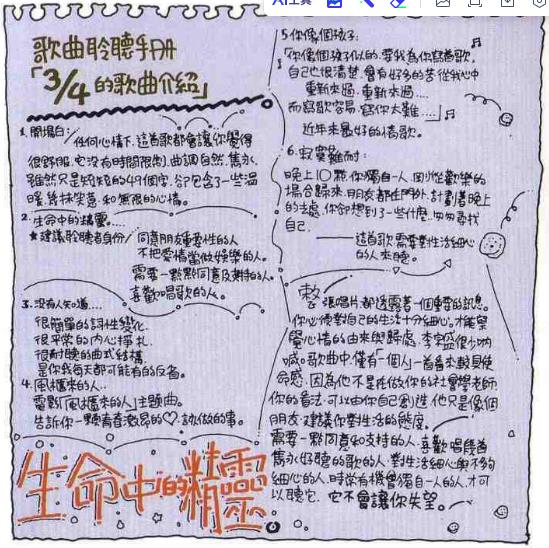 歌曲聆聽手册
「3/4的歌曲介紹」
1.開場白:
任何心情下,這首歌都會讓你覺得
很舒服.它沒有時間限制.曲調自然、雋永.
雖然只是短短的49個字.卻包含了一些溫
暖、幾抹笑意、和無限的心情。
2.生命中的精靈…
★建議聆聽者身份/同意朋友重要性的人
不把愛情當做娛樂的人。
需要一點點同意及支持的人。
喜歡唱歌的人。
3.沒有人知道…
很簡單的詞性變化.
很平常的內心掙扎.
很耐聽的曲式結構.
是你我每天都可能有的反省。
4.風櫃來的人..
電影「風櫃來的人」主題曲。
告訴你一顆青春激昂的♡.該做的事。
生命中的精靈
5.你像個孩子:
「你像個孩子似的.要我為你寫首歌.
自己也很清楚.會有好多的苦從我心中
重新來過.重新來過….
而寫歌容易.寫你太難…」
近年來最好的情歌。
6.寂寞難耐:
晚上10點.你獨自一人.剛從歡樂的
場合歸來.朋友都在門外.計劃著晚上
的去處.你卻想到了一些什麼.
自己.
——這首歌需要對生活細心
的人來聽。
整張唱片.都透露著一個重要的訊息.
你必須對自己的生活十分細心.才能望
覺心情的由來與歸處.李宗盛很少吶
喊.歌曲中僅有「一個人」一首看來較具使
命感.因為他不是在做你的社會學老師
你的看法.可以由你自己創造.他只是像個
朋友.建議你對生活的態度。
需要一點同意和支持的人.喜歡唱幾首
雋永好聽的歌的人.對生活細心與不夠
細心的人.時常有機會獨自一人的人.才可
以聽它.它不會讓你失望。